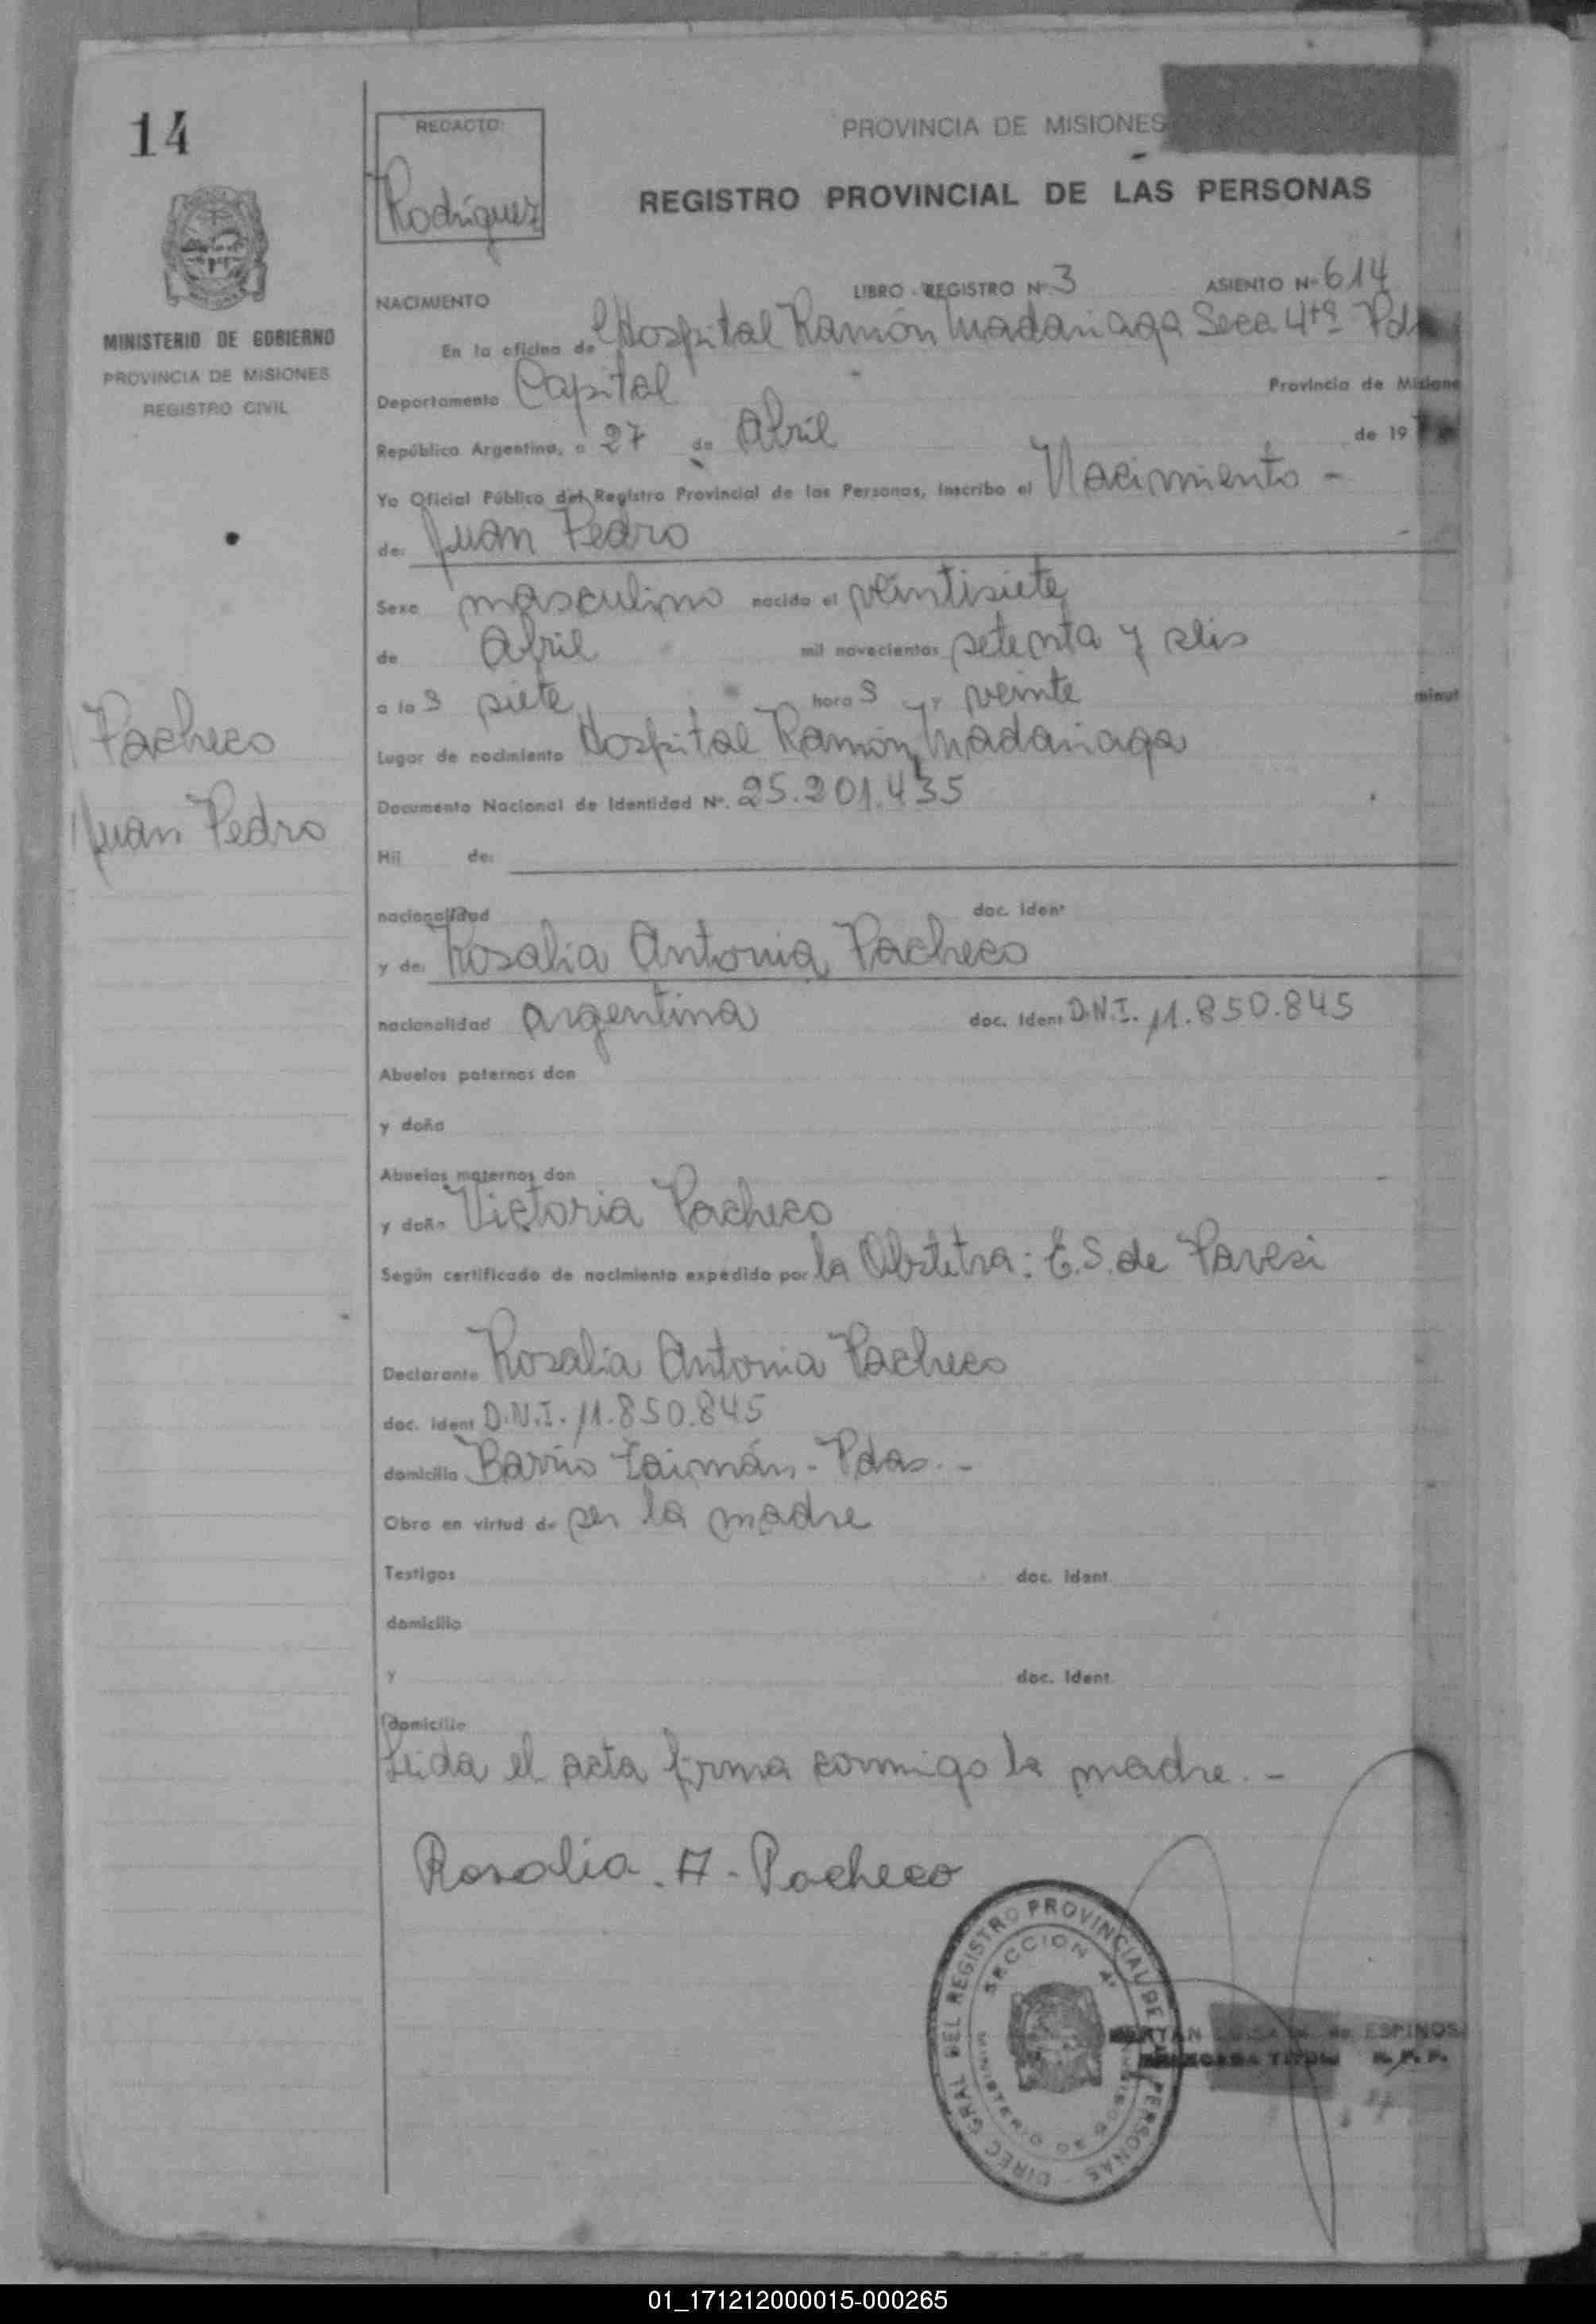 14
REDACTO:
Rodríguez
PROVINCIA DE MISIONES
REGISTRO PROVINCIAL DE LAS PERSONAS
MINISTERIO DE GOBIERNO
PROVINCIA DE MISIONES
REGISTRO CIVIL
NACIMIENTO LIBRO - REGISTRO Nº 3 ASIENTO Nº 614
En la oficina de Hospital Ramón Madariaga Secc 4tª Pd
Departamento Capital Provincia de Misione
República Argentina, a 27 de Abril de 19
Yo Oficial Público del Registro Provincial de las Personas, inscribo el Nacimiento -
de: Juan Pedro
Sexo masculino nacido el veintisiete
de Abril mil novecientos setenta y seis
a las siete horas y veinte minut
Lugar de nacimiento Hospital Ramón Madariaga
Documento Nacional de Identidad Nº. 25.201.435
Pacheco
Juan Pedro
Hij de:
nacionalidad doc. Ident
y de: Rosalia Antonia Pacheco
nacionalidad argentina doc. Ident D.N.I. 11.850.845
Abuelos paternos don
y doña
Abuelos maternos don
y doña Victoria Pacheco
Según certificado de nacimiento expedido por la Obstetra: E.S. de Pavesi
Declarante Rosalia Antonia Pacheco
doc. Ident D.N.I. 11.850.845
domicilio Barrio Zaimán - Pdas. -
Obra en virtud de ser la madre
Testigos doc. Ident.
domicilio
y doc. Ident.
domicilio
Leida el acta firma conmigo la madre. -
Rosalia. A. Pacheco
DIREC GRAL DEL REGISTRO PROVINCIAL DE PERSONAS
SECCION 4ª
MINISTERIO DE
de ESPINOS
01_171212000015-000265